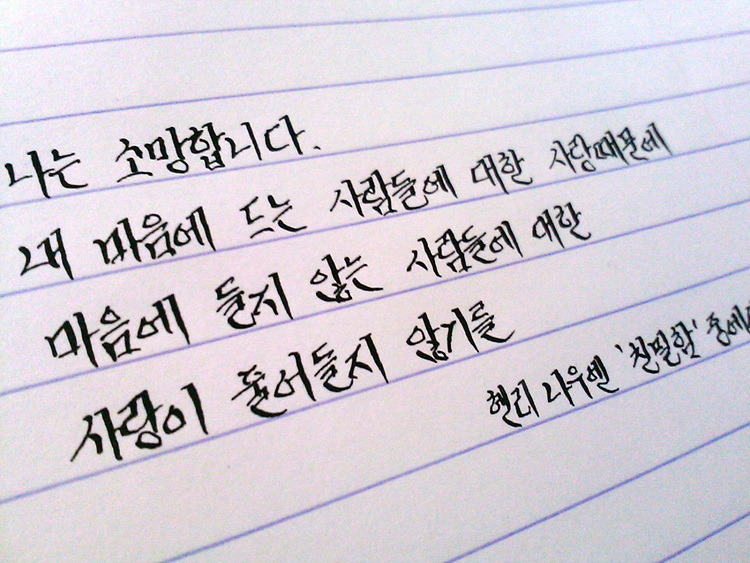 나는 소망합니다.
내 마음에 드는 사람들에 대한 사랑때문에
마음에 들지 않는 사람들에 대한
사랑이 줄어들지 않기를
헨리 나우웬 '친밀함' 중에